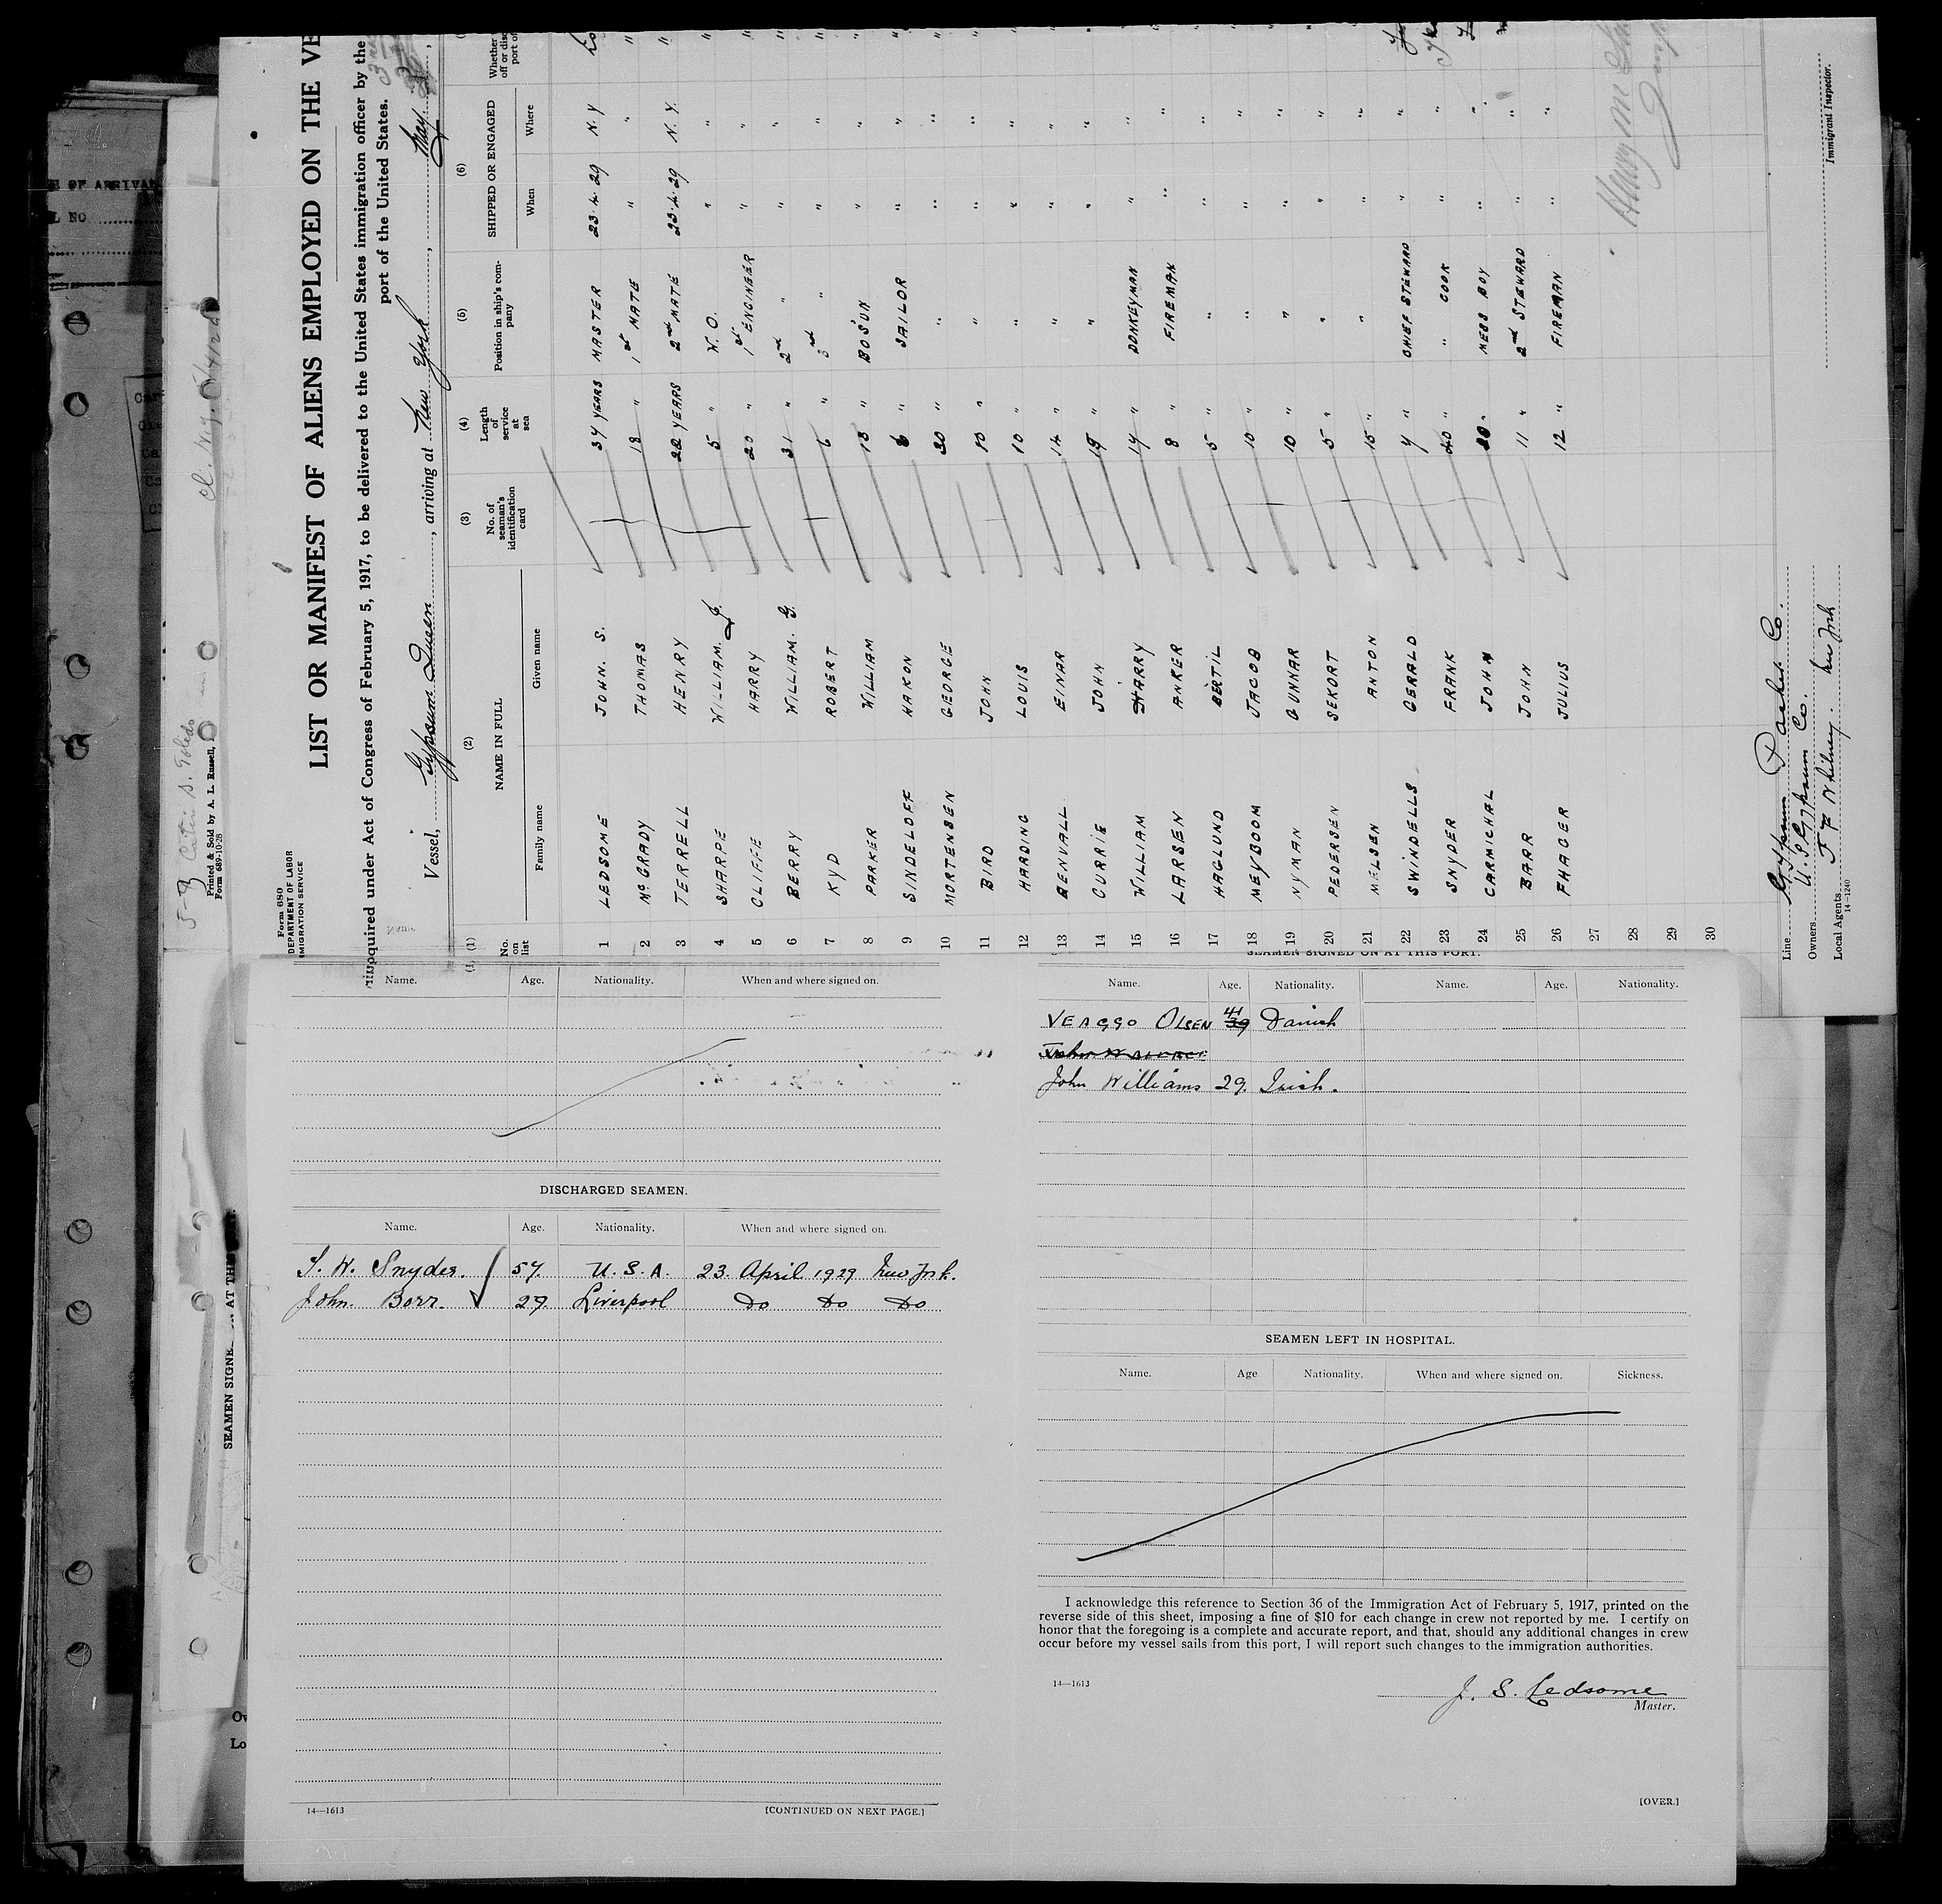 Form 680
DEPARTMENT OF LABOR
IMMIGRATION SERVICE
LIST OR MANIFEST OF ALIENS EMPLOYED ON THE VE
required under Act of Congress of February 5, 1917, to be delivered to the United States immigration officer by the
port of the United States.
Vessel, Gypsum Queen, arriving at New York, May
(1) (2) (3) (4) (5) (6)
No. on list NAME IN FULL No. of seaman's identification card Length of service at sea Position in ship's company SHIPPED OR ENGAGED Whether
Family name Given name When Where
1 LEDSOME JOHN. S. 34 YEARS MASTER 23.4.29 N.Y
2 McGRADY THOMAS 18 " 1st MATE " "
3 TERRELL HENRY 22 YEARS 2nd MATE 23.4.29 N.Y.
4 SHARPE WILLIAM. J. 5 " W.O. " "
5 CLIFFE HARRY 20 " 1st ENGINEER " "
6 BERRY WILLIAM. G. 31 " 2nd " " "
7 KYD ROBERT 6 " 3rd " " "
8 PARKER WILLIAM 13 " BO'SUN " "
9 SINDELDEF HAKON 6 " SAILOR " "
10 MORTENSEN GEORGE 30 " " " "
11 BIRD JOHN 10 " " " "
12 HARDING LOUIS 10 " " " "
13 BENVALL EINAR 14 " " " "
14 CURRIE JOHN 15 " " " "
15 WILLIAM HARRY 14 " DONKEYMAN " "
16 LARSEN ANKER 8 " FIREMAN " "
17 HAGLUND BERTIL 5 " " " "
18 MEYBOOM JACOB 10 " " " "
19 NYMAN GUNNAR 10 " " " "
20 PEDERSEN SEKORT 5 " " " "
21 MELSEN ANTON 15 " " " "
22 SWINDELLS GERALD 4 " CHIEF STEWARD " "
23 SNYDER FRANK 40 " " COOK " "
24 CARMICHAL JOHN 20 " MESS BOY " "
25 BARR JOHN 11 " 2nd STEWARD " "
26 FHAGER JULIUS 12 " FIREMAN " "
27
28
29
30
Line Gypsum Packet Co.
Owners U.S. Gypsum Co.
Local Agents J F Whitney. New York
14-1240
Immigrant Inspector.
Printed & Sold by A. L. Russell,
Form 689-10-28
Name. Age. Nationality. When and where signed on.
DISCHARGED SEAMEN.
Name. Age. Nationality. When and where signed on.
F. W. Snyder. 57. U.S.A. 23. April 1929 New York.
John. Barr. 29. Liverpool Do Do Do
14—1613
[CONTINUED ON NEXT PAGE.]
SEAMEN SIGNED ON AT THIS PORT.
Name. Age. Nationality. Name. Age. Nationality.
VEAGGO OLSEN 41 39 Danish
John Williams 29. Irish.
SEAMEN LEFT IN HOSPITAL.
Name. Age Nationality. When and where signed on. Sickness.
I acknowledge this reference to Section 36 of the Immigration Act of February 5, 1917, printed on the
reverse side of this sheet, imposing a fine of $10 for each change in crew not reported by me. I certify on
honor that the foregoing is a complete and accurate report, and that, should any additional changes in crew
occur before my vessel sails from this port, I will report such changes to the immigration authorities.
14—1613
J. S. Ledsome
Master.
[OVER.]